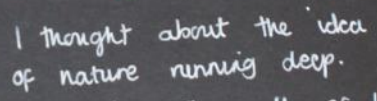 I thought about the idea
of nature running deep.